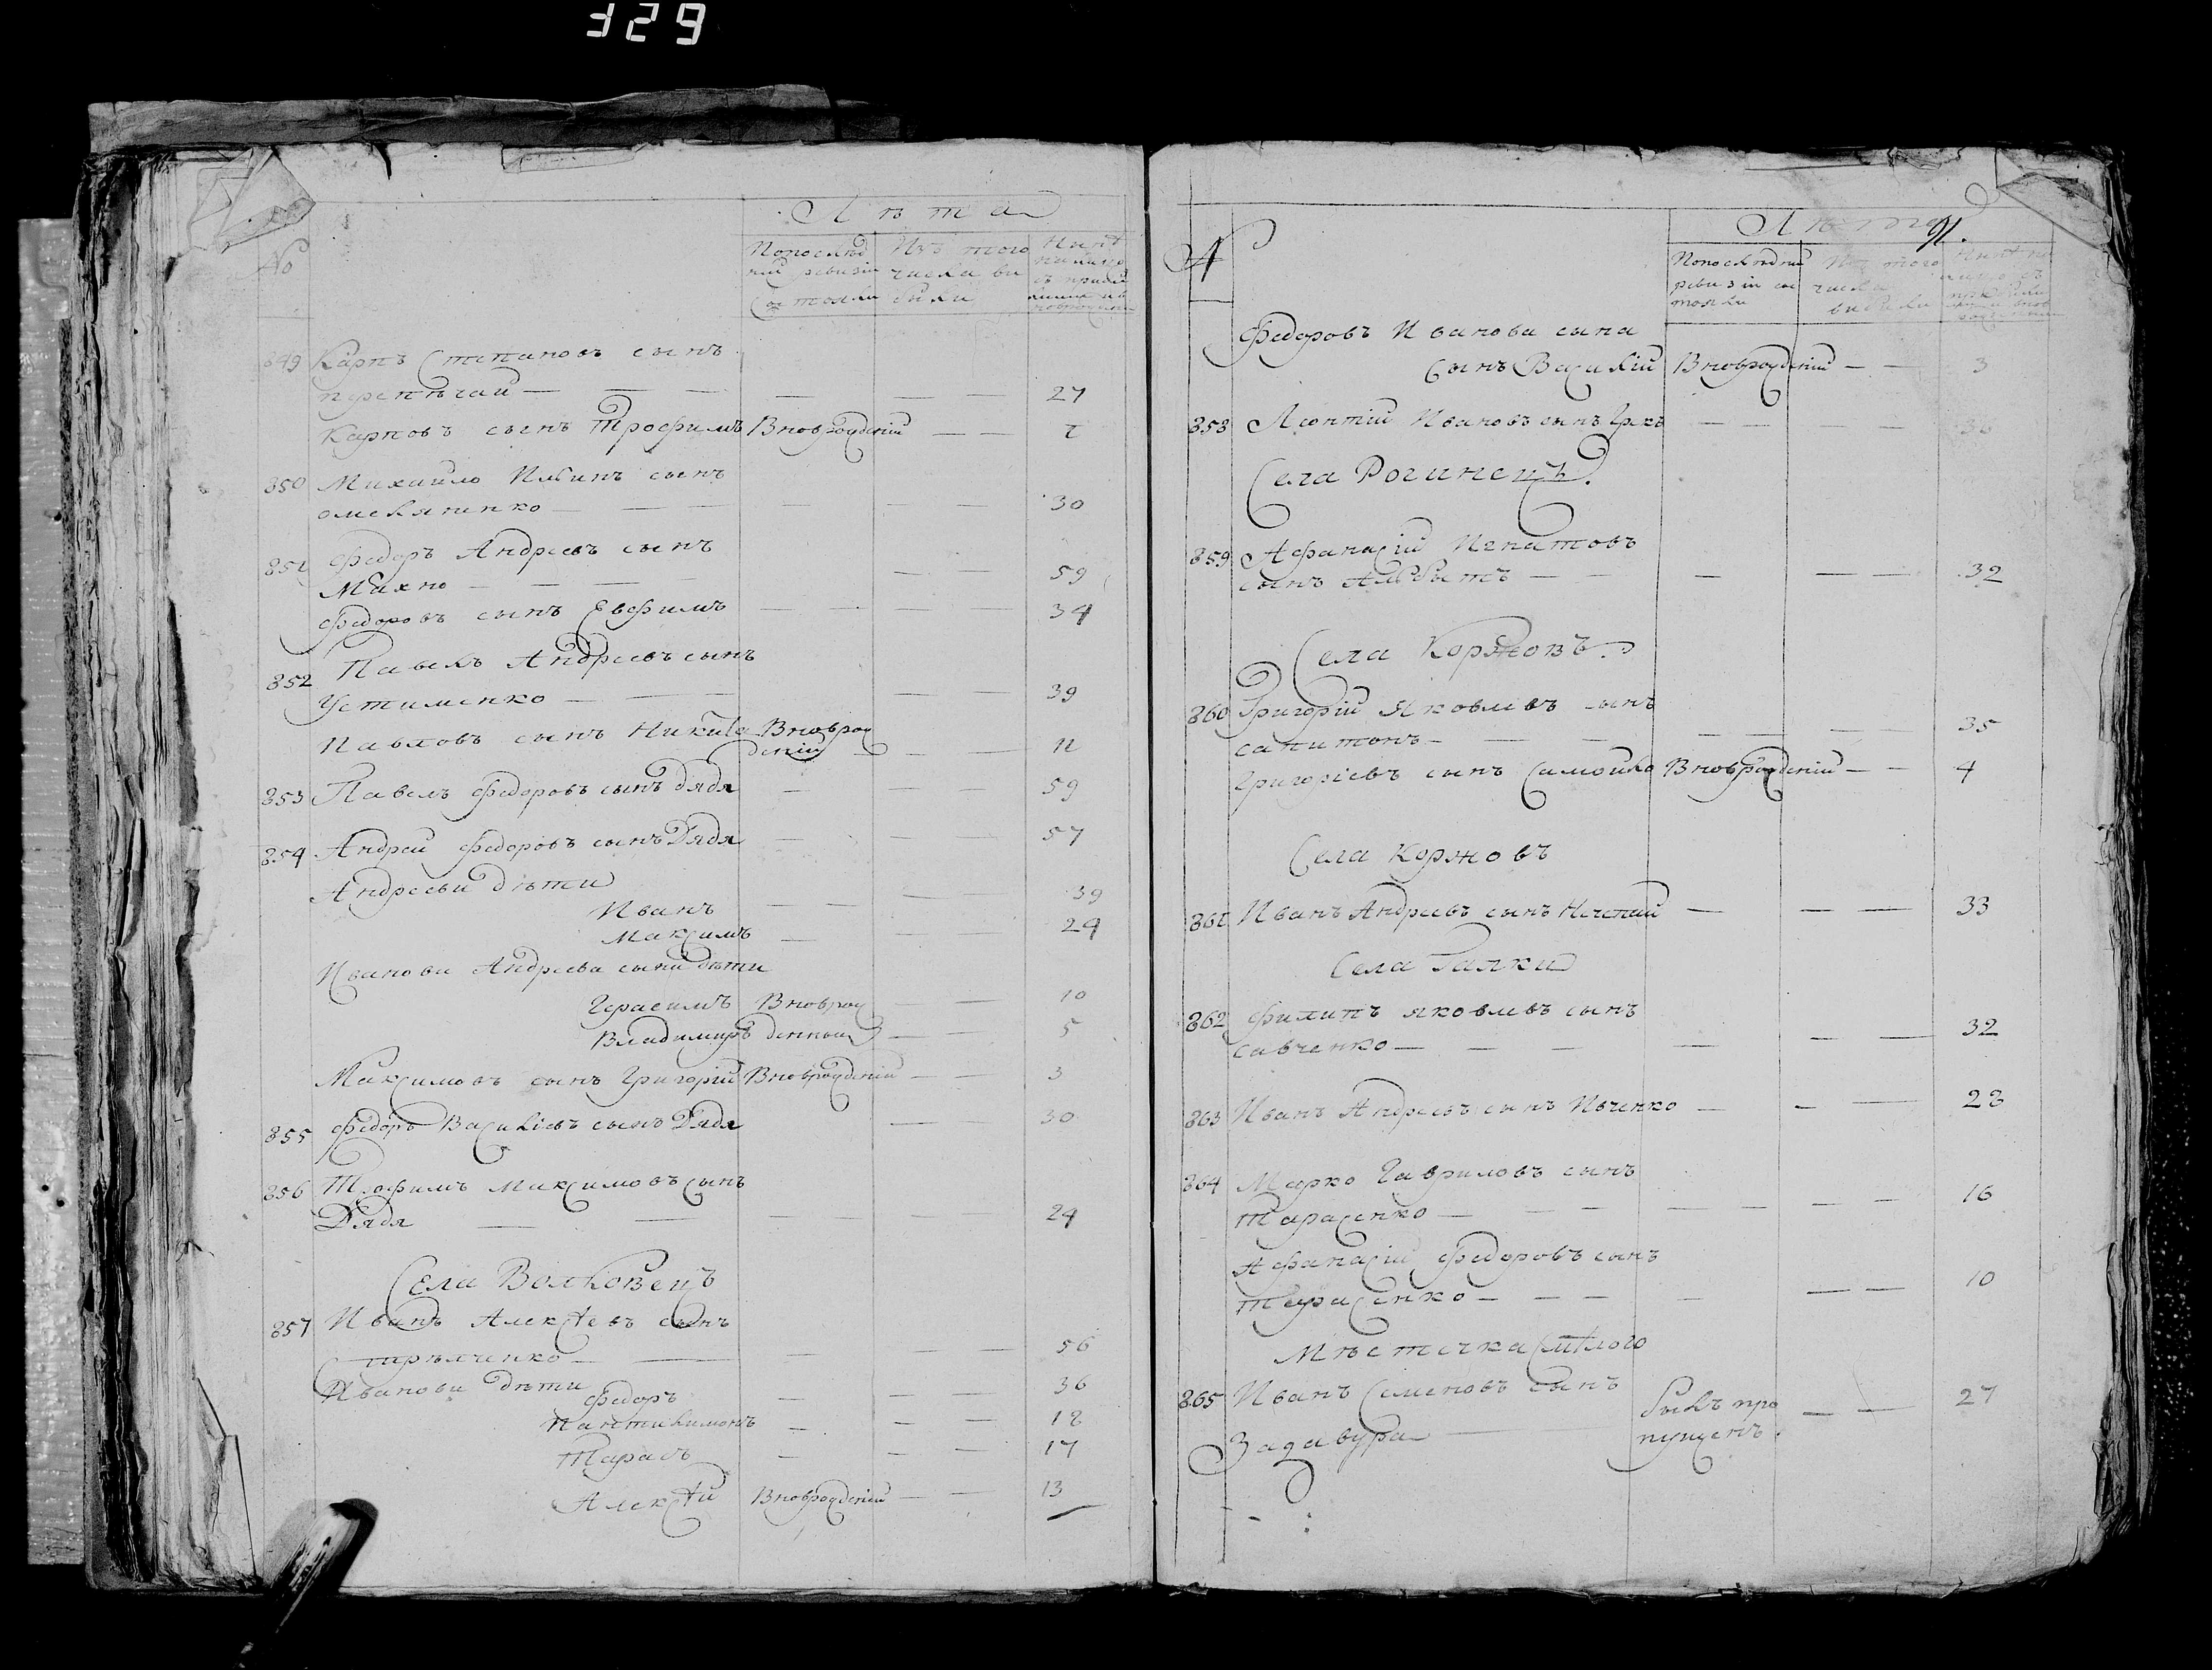 329
Лѣта
№
Попослѣд
ней ревизіи
состояли
Изъ того
числа вы
были
Нынѣ
налицо
849 Карпъ Степановъ сынъ
перепѣчай — — — — — — 27
Карповъ сынъ Трофимъ Вновьрожденній — — 1
850 Михайло Ильинъ сынъ
омеляненко — — — — — 30
851 Федоръ Андреевъ сынъ
Михно — — — — — 59
Федоровъ сынъ Евфимъ — — — — 34
852 Павелъ Андреевъ сынъ
Устименко — — — — — 39
Павловъ сынъ Никита Вновьрож
денній — — 11
853 Павелъ Федоровъ сынъ дядя — — — 59
854 Андрей Федоровъ сынъ Дядя — — — 57
Андреевы дѣти
Иванъ — — — — 39
Максимъ — — — 24
Иванови Андреева сына дѣти
Герасимъ Вновьрож — — 10
Владимиръ денныи — — 5
Максимовъ сынъ Григорій Вновьрожденній — — 3
855 Федоръ Василіевъ сынъ Дядя — 30
856 Трофимъ Максимовъ сынъ
Дядя — — — — — — 24
Села Волковецъ
857 Иванъ Алексѣевъ сынъ
стрѣлченко — — — — — 56
Иванови дѣти
Федоръ — — — 36
Пантилимонъ — — — 18
Тарасъ — — — 17
Алексѣй Вновьрожденній — — 13
Лѣта
91.
№
Попослѣдней
ревизіи со
стояли
Изъ того
числа
выбыли
Федоровъ Иванова сына
сынъ Василій Вновьрожденній — — 3
858 Леонтій Ивановъ сынъ Грекъ — — — — 36
Села Рогинецъ.
859 Афанасій Игнатовъ
сынъ Альбытъ — — — — — 32
Села Коржовъ.
860 Григорій Яковлевъ сынъ
сапитонъ — — — — — — — 35
Григоріевъ сынъ Самойло Вновьрожденній — — 4
Села Коржовъ
861 Иванъ Андреевъ сынъ Нечепай — — — 33
Села Галки
862 Филипъ яковлевъ сынъ
савченко — — — — — — 32
863 Иванъ Андреевъ сынъ Ивченко — — — 28
864 Марко Гавриловъ сынъ
Тарасенко — — — — — — — 16
Афанасій Федоровъ сынъ
Тарасенко — — — — — — 10
Мѣстечка Смѣлого
865 Иванъ Семеновъ сынъ
былъ про — — 27
Задавура — пущенъ.